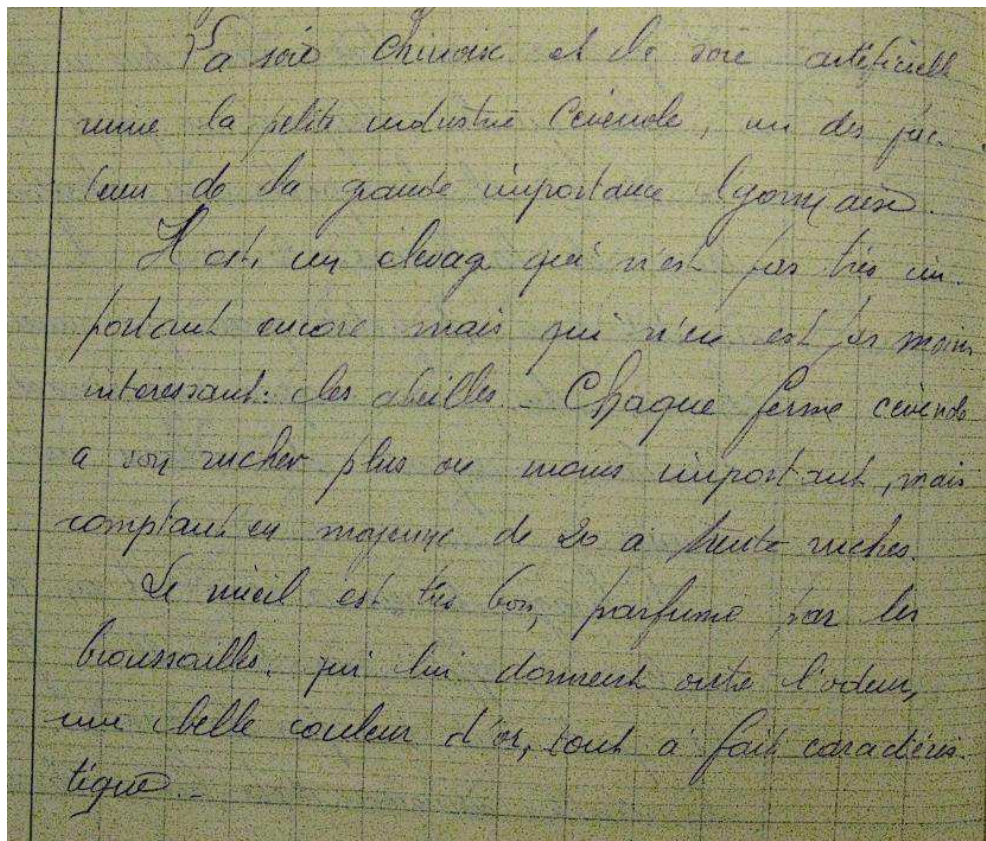 La soie chinoise et la soie artificielle
ruine la petite industrie Cévenole, un des fac-
teurs de la grande importance lyonnaise.
Il est un élevage qui n'est pas très im-
portant encore mais qui n'en est pas moins
intéressant: les abeilles - Chaque ferme cévenole
a son rucher plus ou moins important, mais
comptant en moyenne de 20 à trente ruches.
Le miel est très bon, parfumé par les
broussailles. qui lui donnent outre l'odeur,
une belle couleur d'or, tout à fait caractéris-
tique -